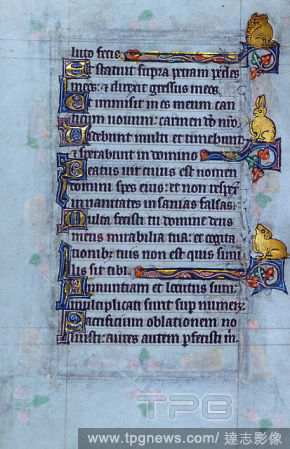 luto fecis
Et statuit supra petram pedes
meos: et direxit gressus meos.
Et immisit in os meum can
ticum novum: carmen deo nostro.
Videbunt multi et timebunt
et sperabunt in domino
Beatus vir cuius est nomen
domini spes eius: et non respexit
in vanitates et insanias falsas.
Multa fecisti tu domine deus
meus mirabilia tua: et cogita
tionibus tuis non est quis simi
lis sit tibi.
Annuntiavi et locutus sum:
multiplicati sunt super numerum.
Sacrificium oblationem no
luisti: aures autem perfecisti m
TPG
www.tpgnews.com/ 達志影像